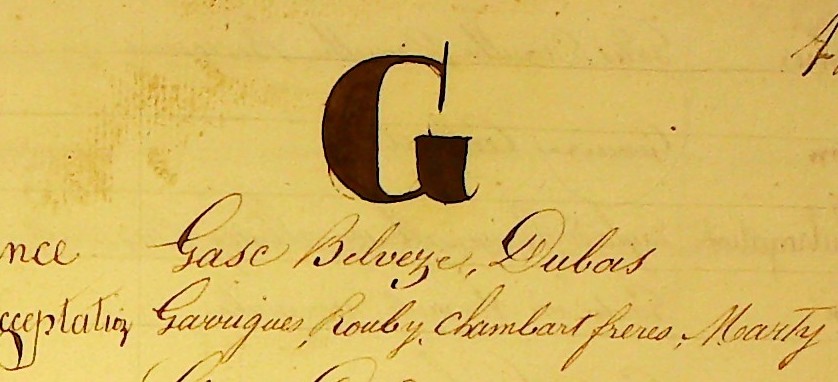 G
nce Gasc Belveze, Dubas
cceptation Garrigues, Rouby, Chambart freres, Marty